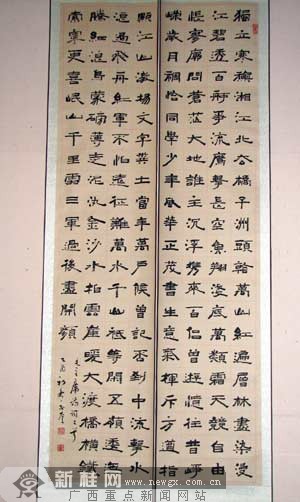 獨立寒穐湘江北去橘子洲頭看萬山紅遍層林盡染漫
江碧透百舸爭流鷹擊長空魚翔淺底萬類霜天競自由
悵寥廓問蒼茫大地誰主沉浮攜來百侶曾遊憶往昔崢
嶸歲月稠恰同學少年風華正茂書生意氣揮斥方遒指
點江山激揚文字糞土當年萬戶侯曾記否到中流擊水
浪遏飛舟紅軍不怕遠征難萬水千山祗等閒五嶺逶迤
騰細浪烏蒙磅礴走泥丸金沙水拍雲崖暖大渡橋橫鐵
索寒更喜岷山千里雪三軍過後盡開顏
毛主席詩詞二首
乙酉初
新桂网
www.newgx.com.cn
广西重点新闻网站